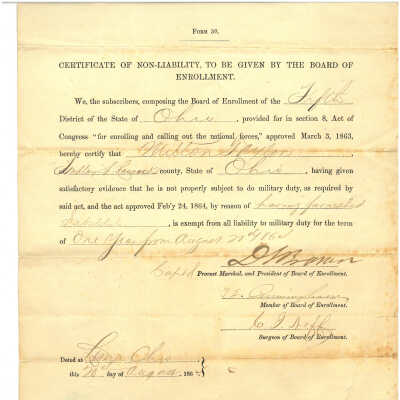 FORM 30.
CERTIFICATE OF NON-LIABILITY, TO BE GIVEN BY THE BOARD OF
ENROLLMENT.
We, the subscribers, composing the Board of Enrollment of the Fifth
District of the State of Ohio, provided for in section 8, Act of
Congress "for enrolling and calling out the national forces," approved March 3, 1863,
hereby certify that Milton
county, State of Ohio, having given
satisfactory evidence that he is not properly subject to do military duty, as required by
said act, and the act approved Feb'y 24, 1864, by reason of having furnished
, is exempt from all liability to military duty for the term
of One Year from August 20
D. S. Brown
Provost Marshal, and President of Board of Enrollment.
Cunningham
Member of Board of Enrollment.
C. I. Neff
Surgeon of Board of Enrollment.
Dated at Ohio
this 20 day of August 186